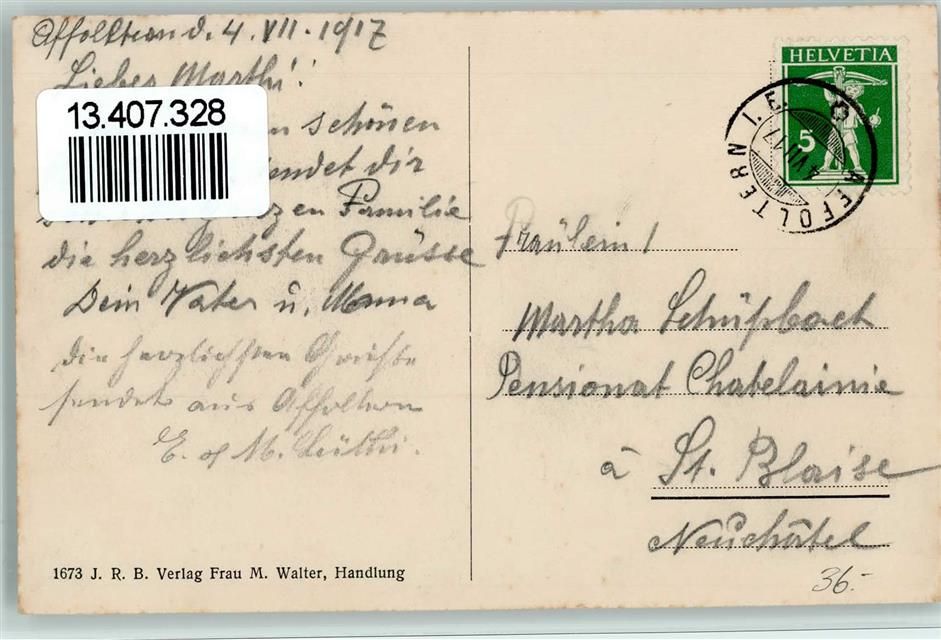 Affoltern d. 4. VII. 1917
Liebes Marthi!
13.407.328
schönen
sendet dir
ganzen Familie
die herzlichsten Grüsse
Dein Vater u. Mama
die herzlichsten Grüsse
sendet aus Affoltern
E. M. Lüthi.
1673 J. R. B. Verlag Frau M. Walter, Handlung
HELVETIA
5
AFFOLTERN I. E.
4 VII 17
Fräulein!
Martha Schüpbach
Pensionat Chatelainie
à St. Blaise
Neuchâtel
36.-